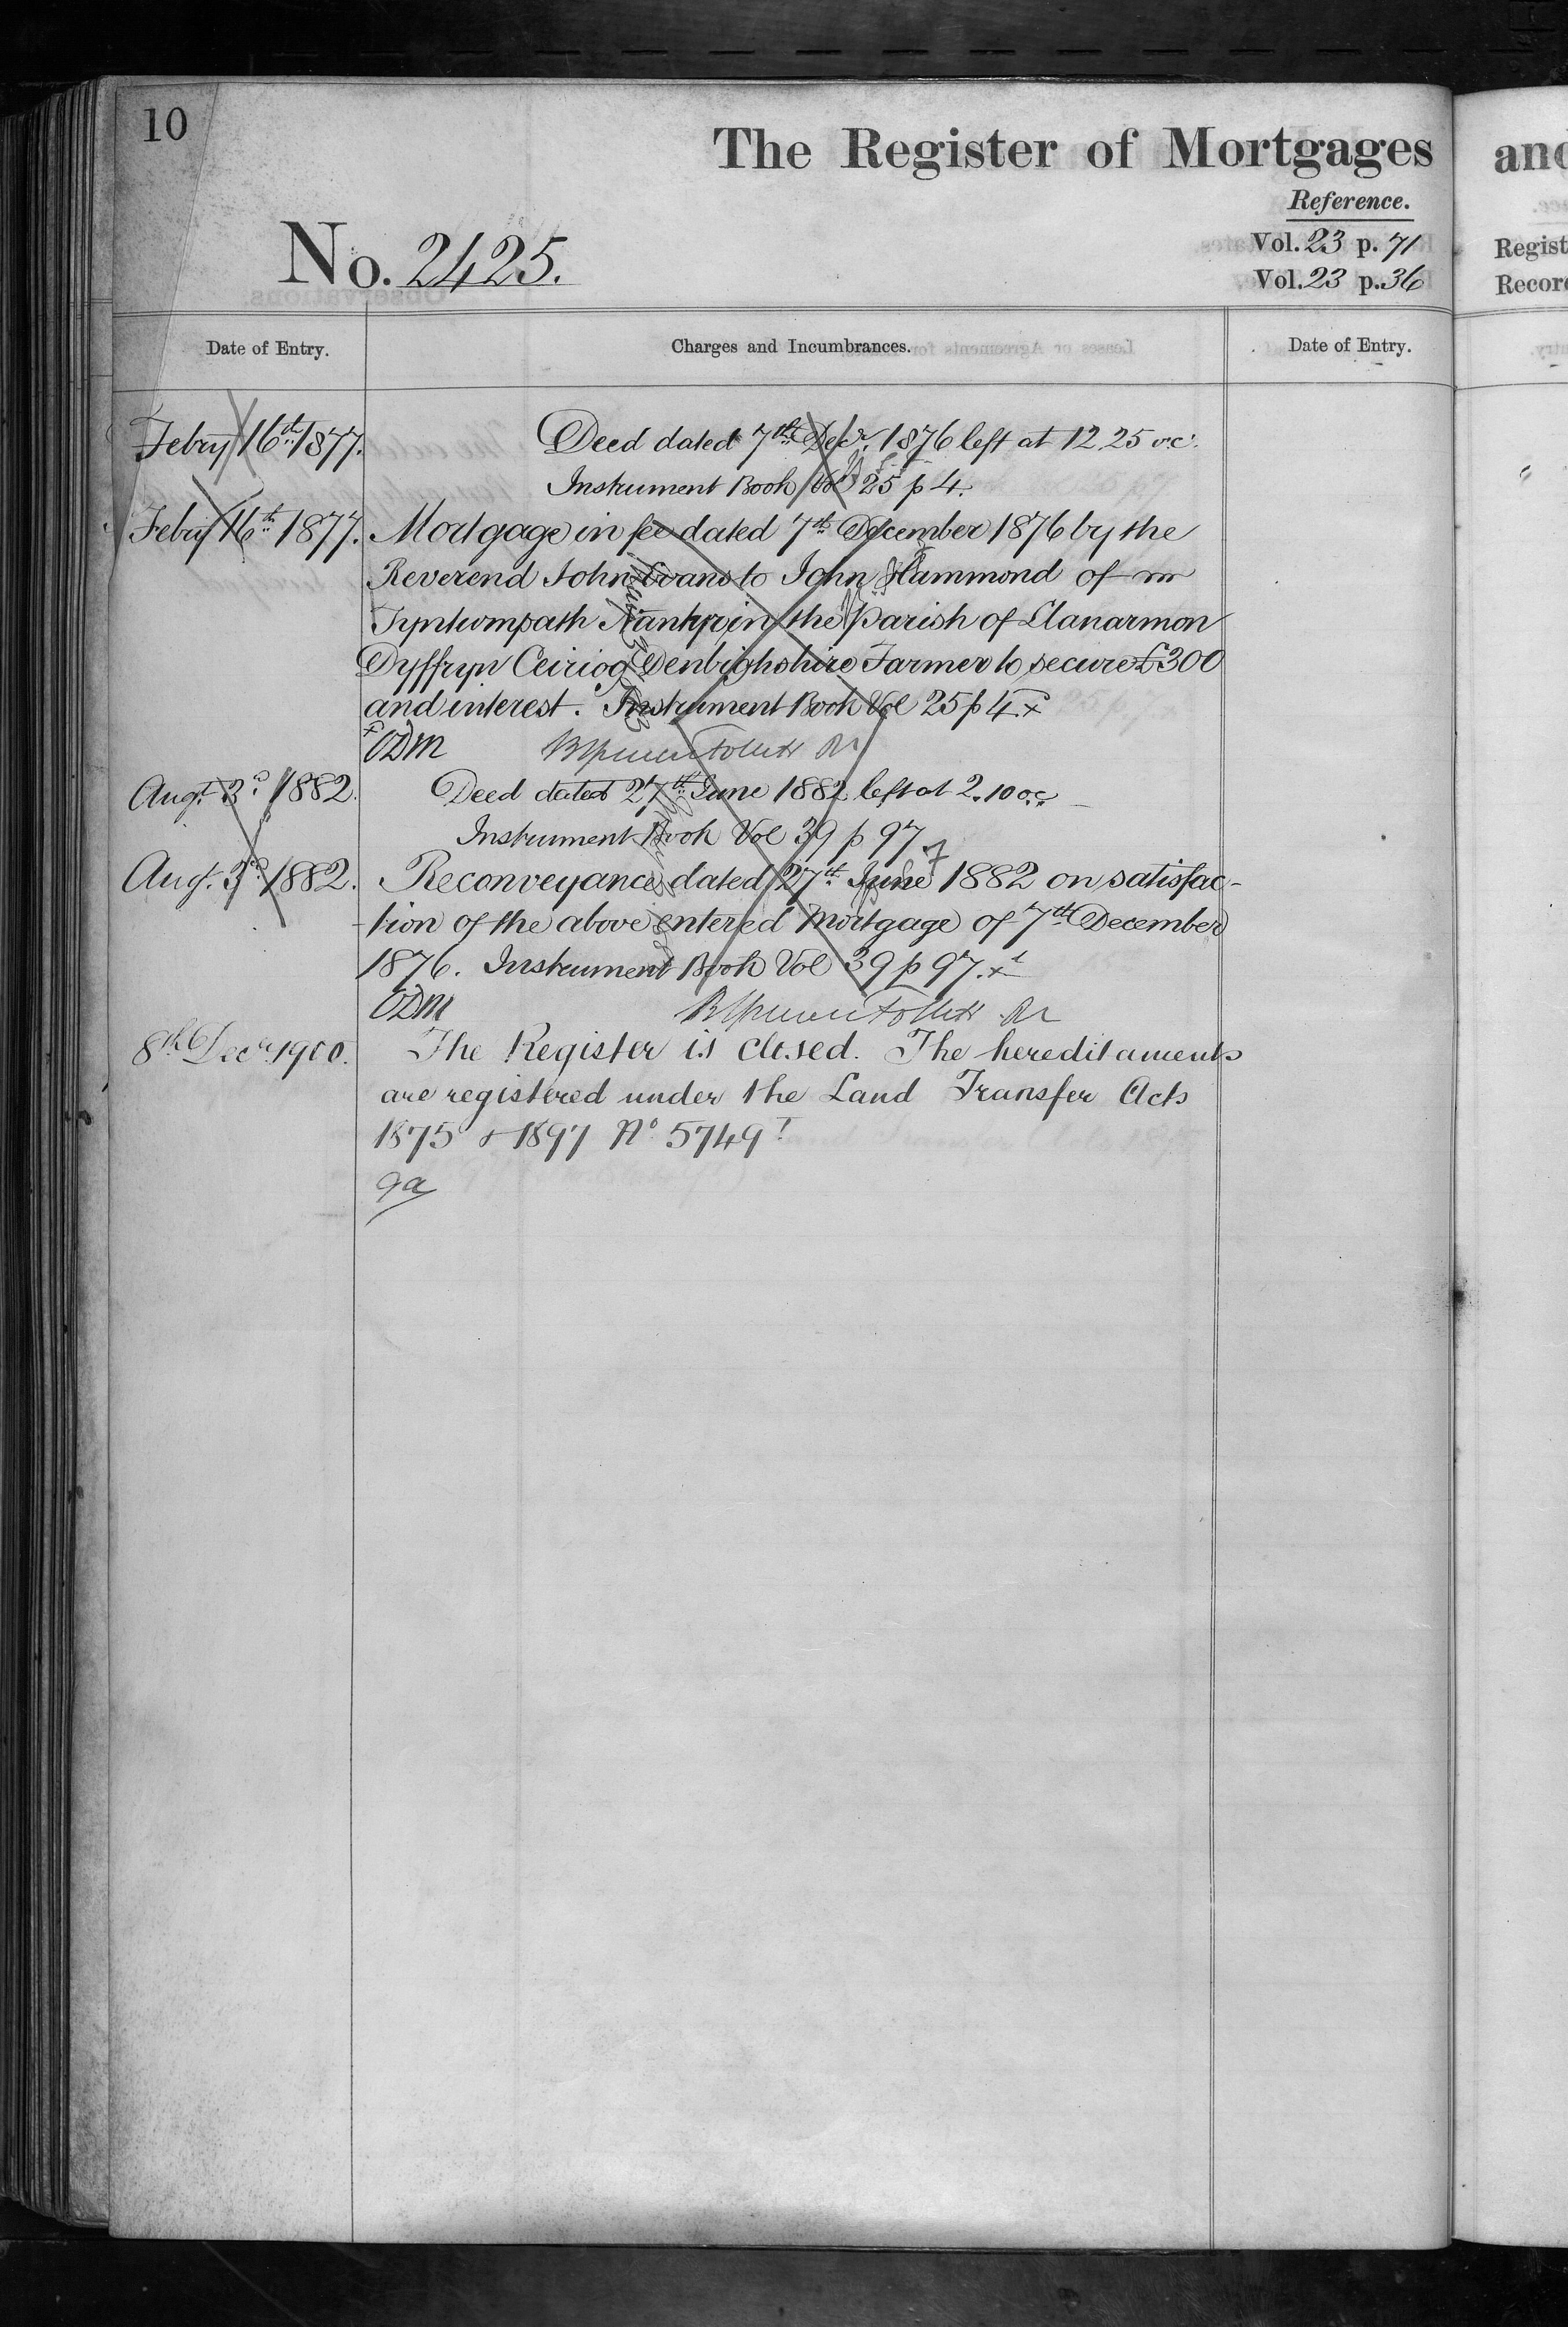 10
The Register of Mortgages
and
Reference.
No. 2425.
Vol. 23 p. 71
Vol. 23 p. 36
Regist
Record
Date of Entry.
Charges and Incumbrances.
Date of Entry.
Febry 16th 1877.
Deed dated 7th Decr. 1876 left at 12.25 oc.
Instrument Book Vol 25 p 4.
Febry 16th 1877.
Mortgage in fee dated 7th December 1876 by the
Reverend John Evans to John Hammond of
in the Parish of Llanarmon
Dyffryn Ceiriog Denbighshire Farmer to secure £300
and interest. Instrument Book Vol 25 p 4. x
x ODM
Augt. 3d 1882.
Deed dated 27th June 1882 left at 2.10 oc
Instrument Book Vol 39 p 97
Augt. 3d 1882.
Reconveyance dated 27th June 1882 on satisfac-
tion of the above entered Mortgage of 7th December
1876. Instrument Book Vol 39 p 97. x
ODM
8th Decr. 1900.
The Register is closed. The hereditaments
are registered under the Land Transfer Acts
1875 & 1897 No 5749